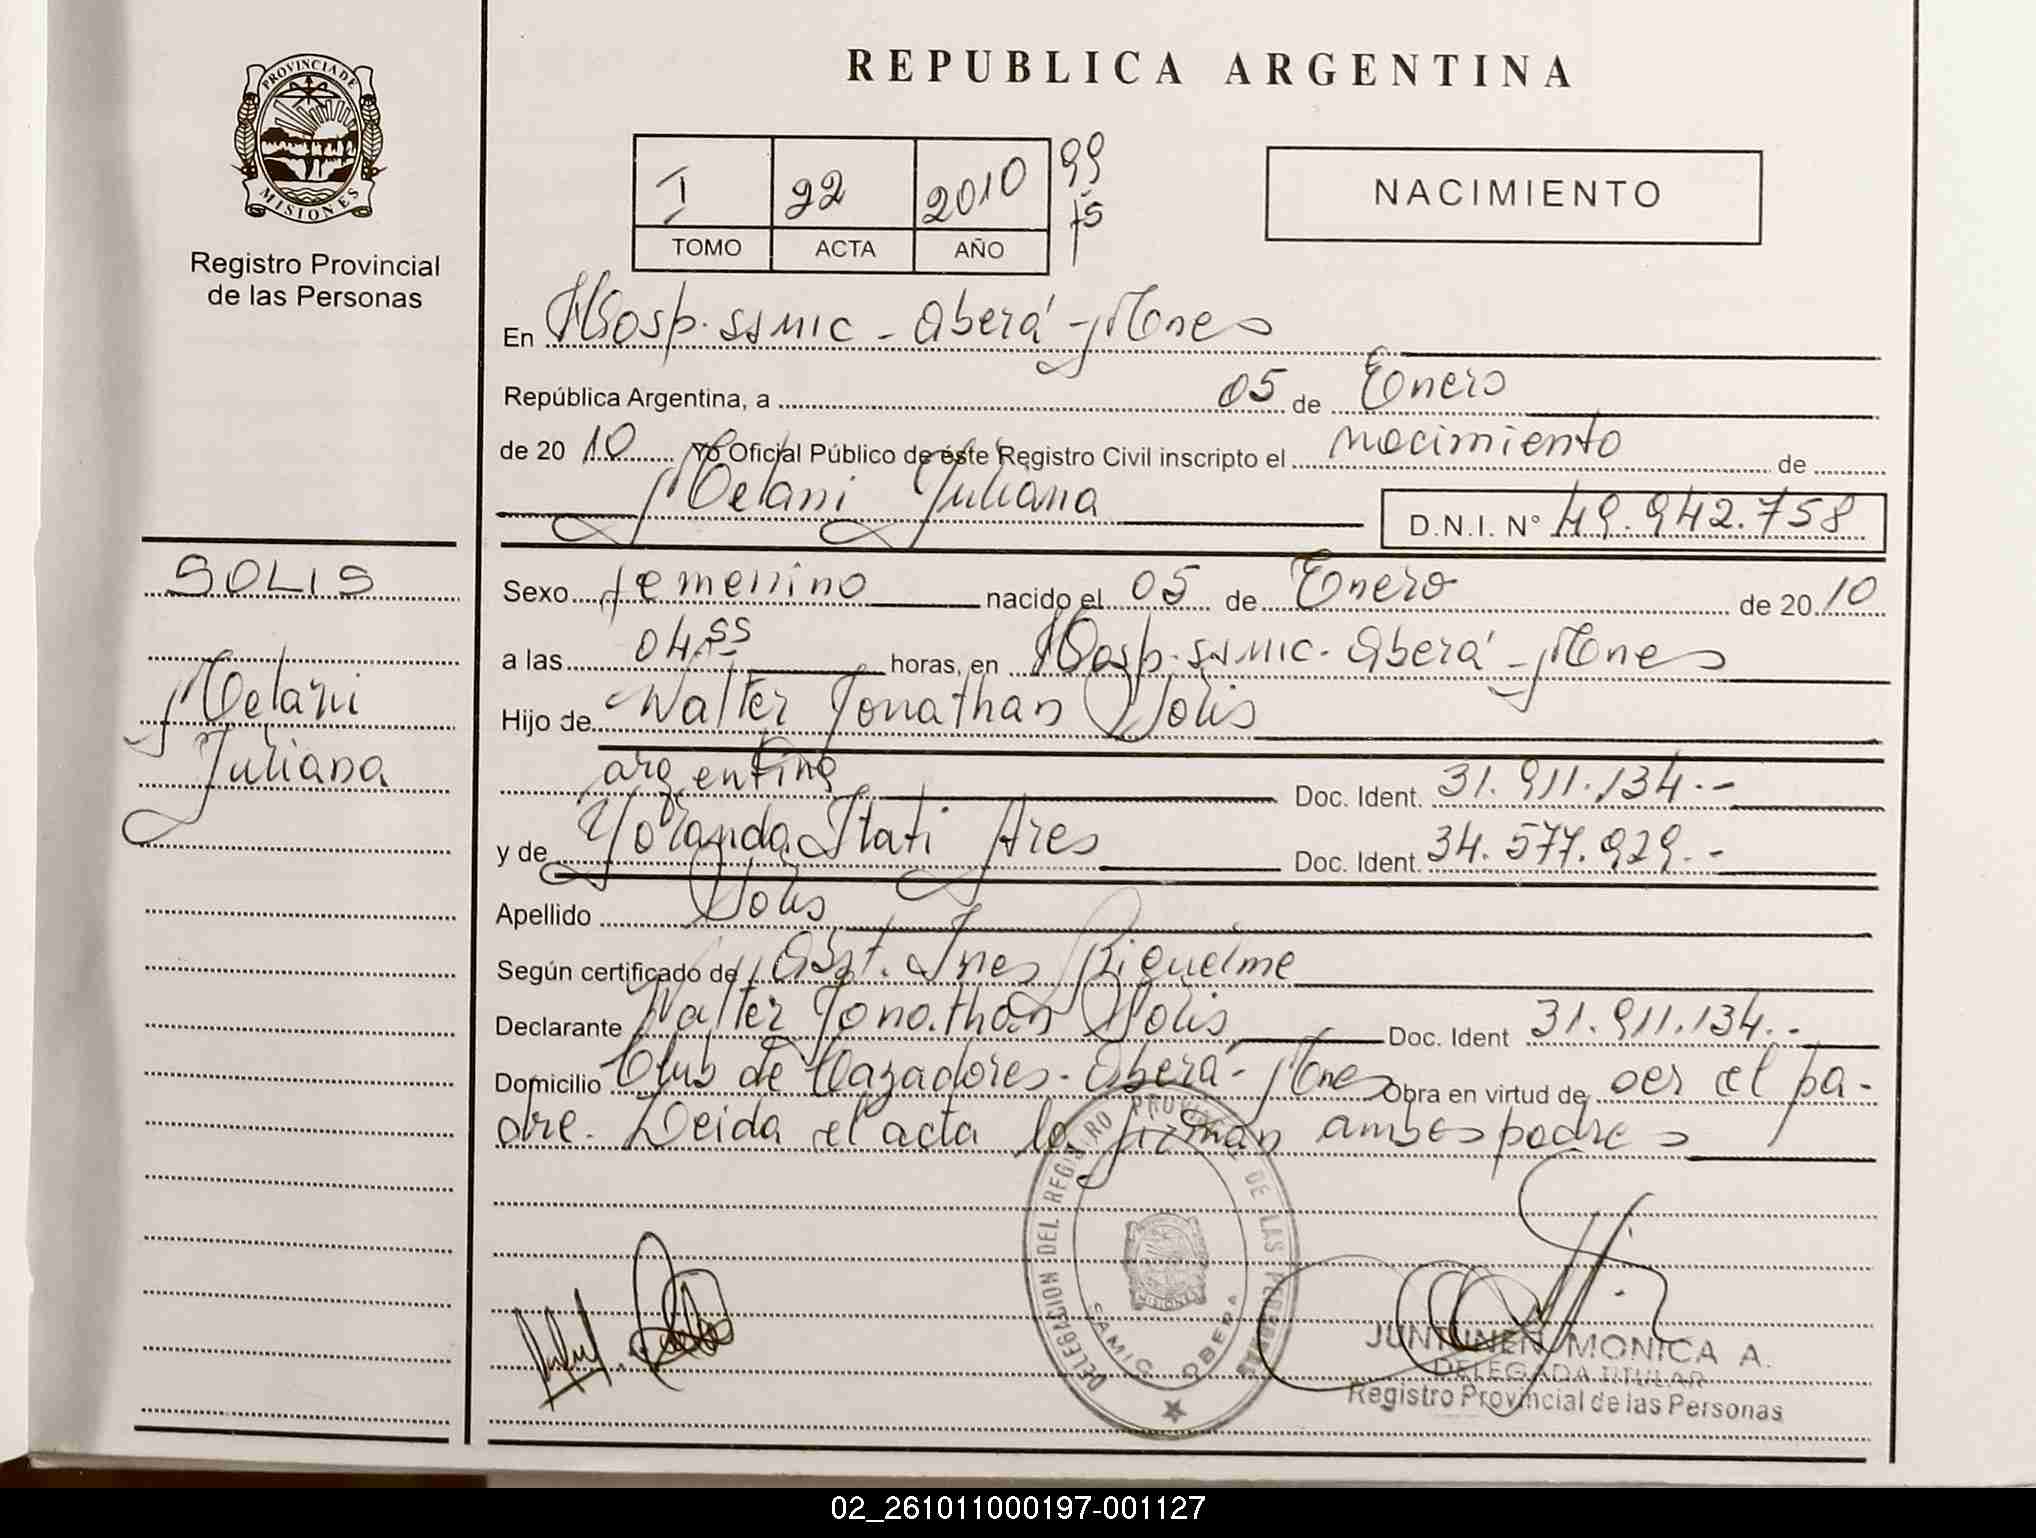 PROVINCIA DE
MISIONES
Registro Provincial
de las Personas
SOLIS
Melani
Juliana
REPUBLICA ARGENTINA
I 22 2010 99
TOMO ACTA AÑO 15
NACIMIENTO
En Hosp. SAMIC - Oberá - Mnes
República Argentina, a 05 de Enero
de 2010 Yo Oficial Público de éste Registro Civil inscripto el nacimiento de
Melani Juliana D.N.I. N° 49.942.758
Sexo femenino nacido el 05 de Enero de 2010
a las 04.55 horas, en Hosp. SAMIC - Oberá - Mnes
Hijo de Walter Jonathan Solis
argentino Doc. Ident. 31.911.134.-
y de Yolanda Itati Ares Doc. Ident. 34.577.929.-
Apellido Solis
Según certificado de Obst. Ines Riquelme
Declarante Walter Jonathan Solis Doc. Ident 31.911.134.-
Domicilio Club de Cazadores - Oberá - Mnes Obra en virtud de ser el pa-
dre. Leida el acta la firman ambos padres
DELEGACION DEL REGISTRO PROVINC. DE LAS PERSONAS
SAMIC OBERA
MISIONES
JUNTUNEN MONICA A.
DELEGADA TITULAR
Registro Provincial de las Personas
02_261011000197-001127